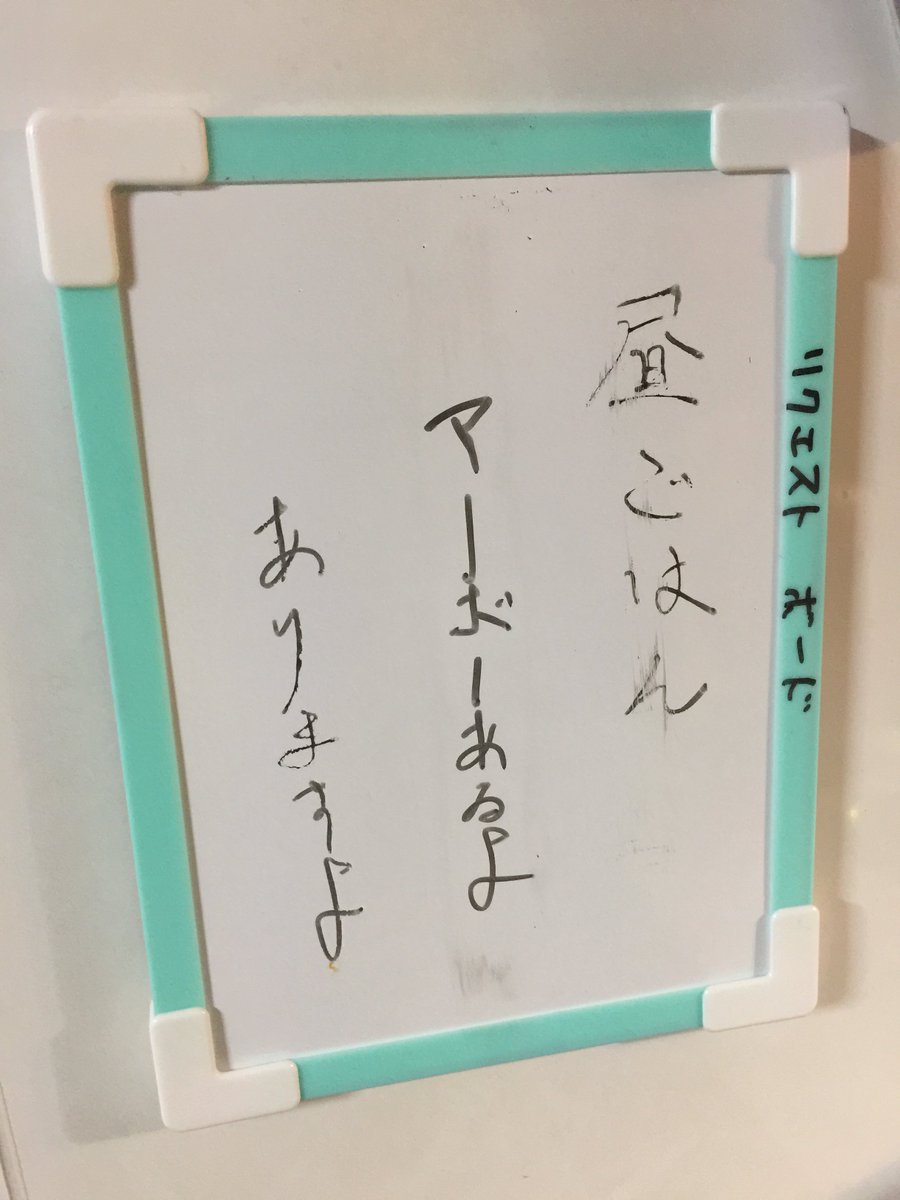 リクエスト ボード
昼ごはん
アーボーあるよ
ありますよ